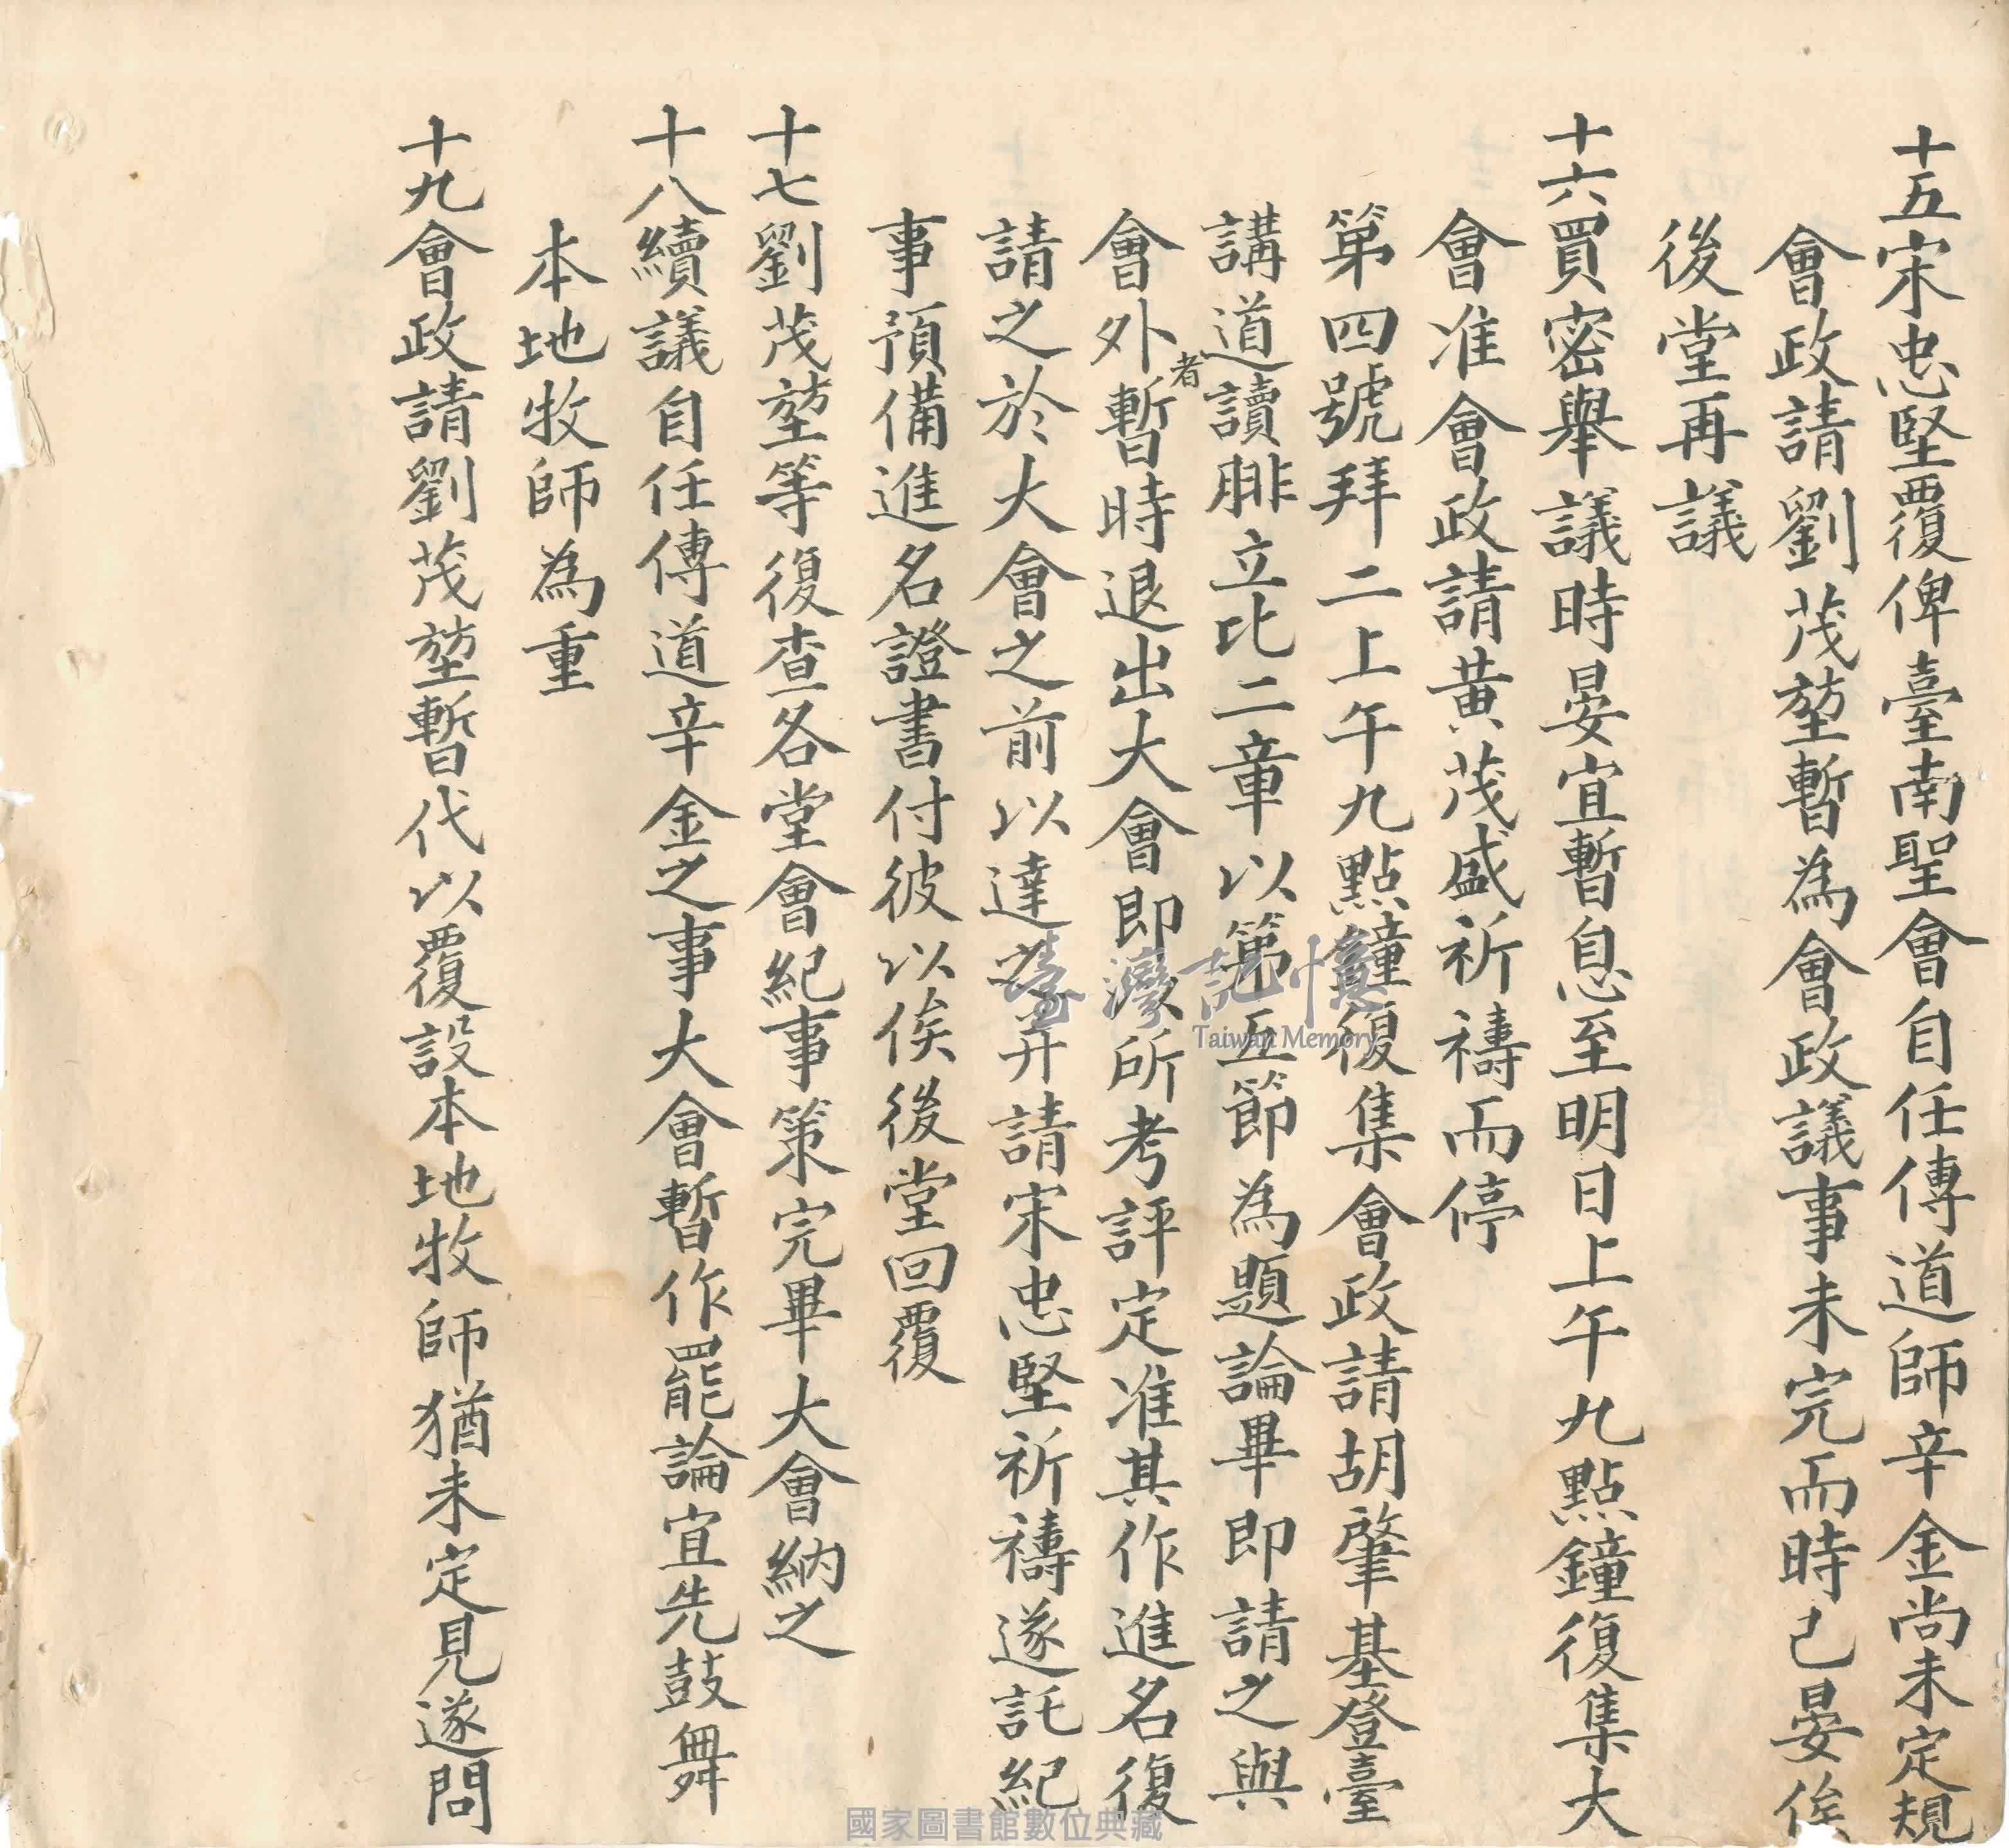 十五宋忠堅覆俾臺南聖會自任傳道師辛金尚未定規
會政請劉茂堃暫為會政議事未完而時已晏俟
後堂再議
十六買密舉議時晏宜暫息至明日上午九點鐘復集大
會准會政請黃茂盛祈禱而停
第四號拜二上午九點鐘復集會政請胡肇基登臺
講道讀腓立比二章以第五節為題論畢即請之與
會外者暫時退出大會即依所考評定准其作進名復
請之於大會之前以達之并請宋忠堅祈禱遂託紀
事預備進名證書付彼以俟後堂回覆
十七劉茂堃等復查各堂會紀事策完畢大會納之
十八續議自任傳道辛金之事大會暫作罷論宜先鼓舞
本地牧師為重
十九會政請劉茂堃暫代以覆設本地牧師猶未定見遂問
臺灣記憶
Taiwan Memory
國家圖書館數位典藏